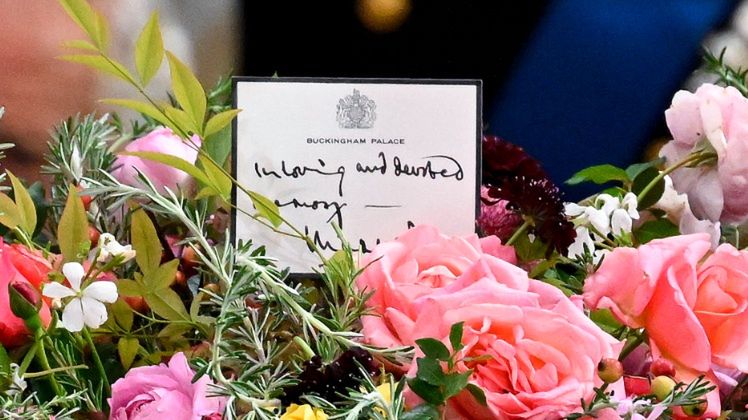 BUCKINGHAM PALACE
In loving and devoted
memory —